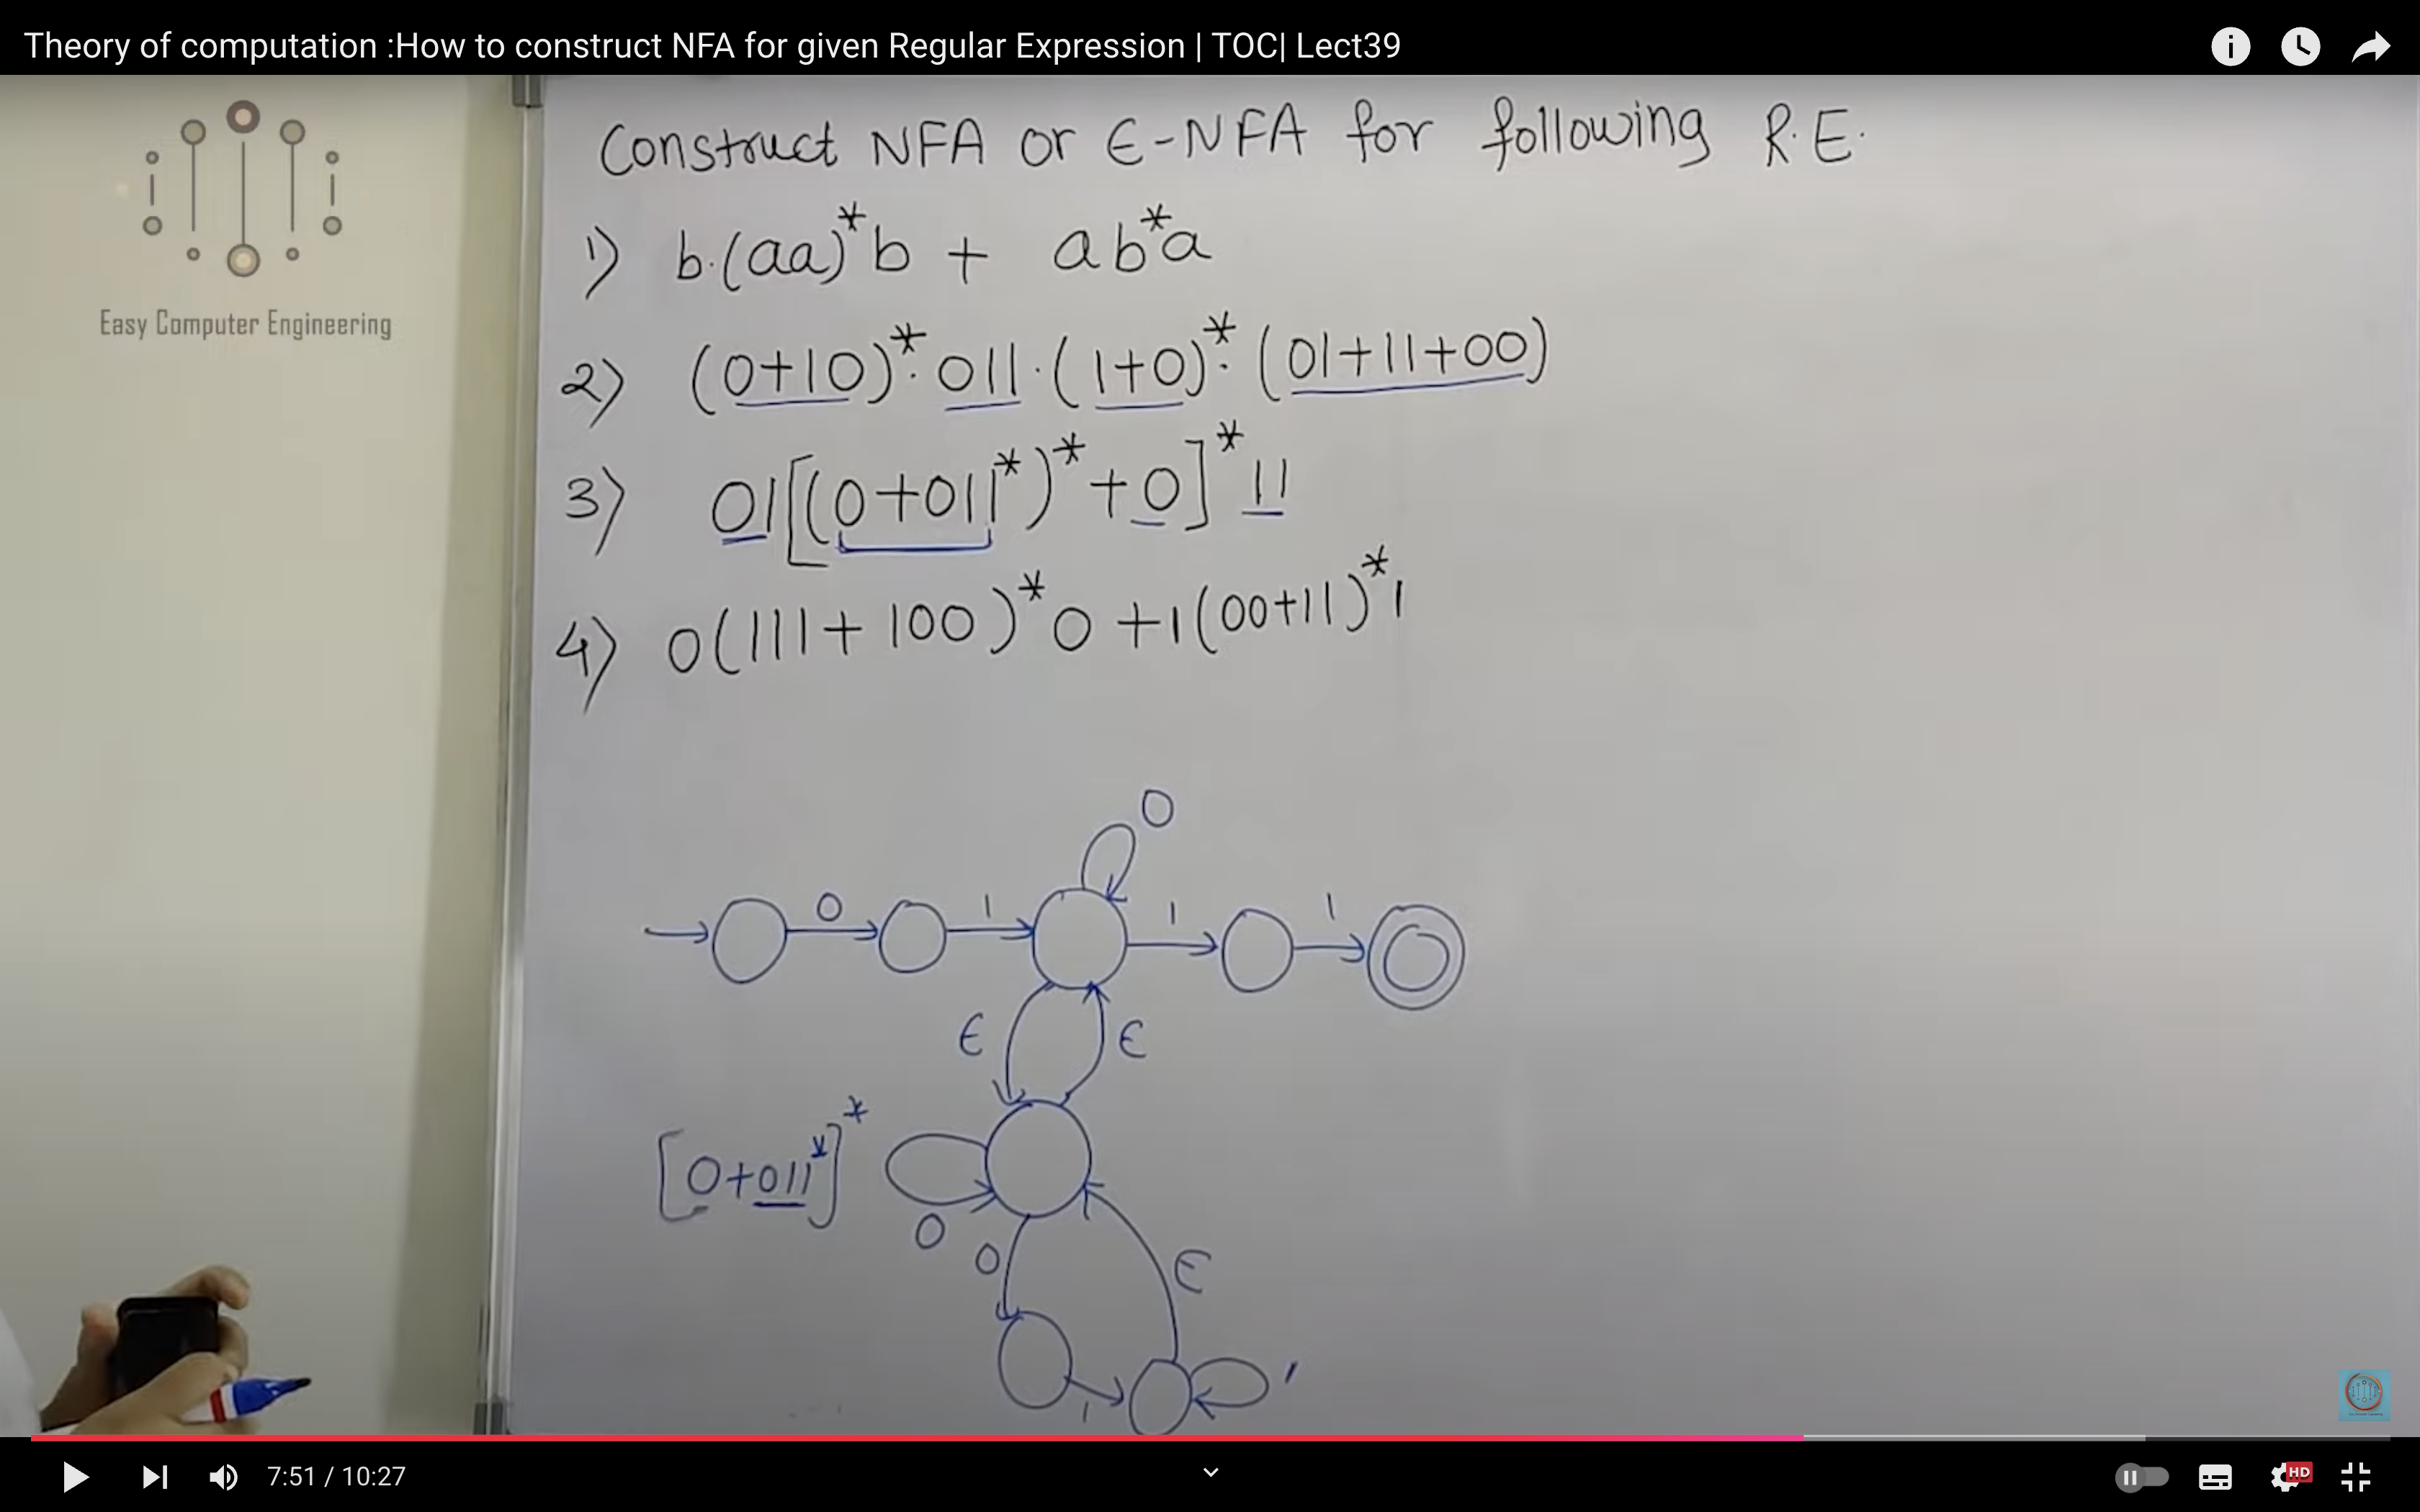 Theory of computation :How to construct NFA for given Regular Expression | TOC| Lect39
Easy Computer Engineering
Construct NFA or ϵ-NFA for following R.E.
1) b.(aa)*b + ab*a
2) (0+10)*.011.(1+0)*.(01+11+00)
3) 01[(0+011*)*+0]*11
4) 0(111+100)*0+1(00+11)*1
0
0 1 1 1
ϵ ϵ
[0+011*]*
0
0 ϵ
1 1
7:51 / 10:27
HD